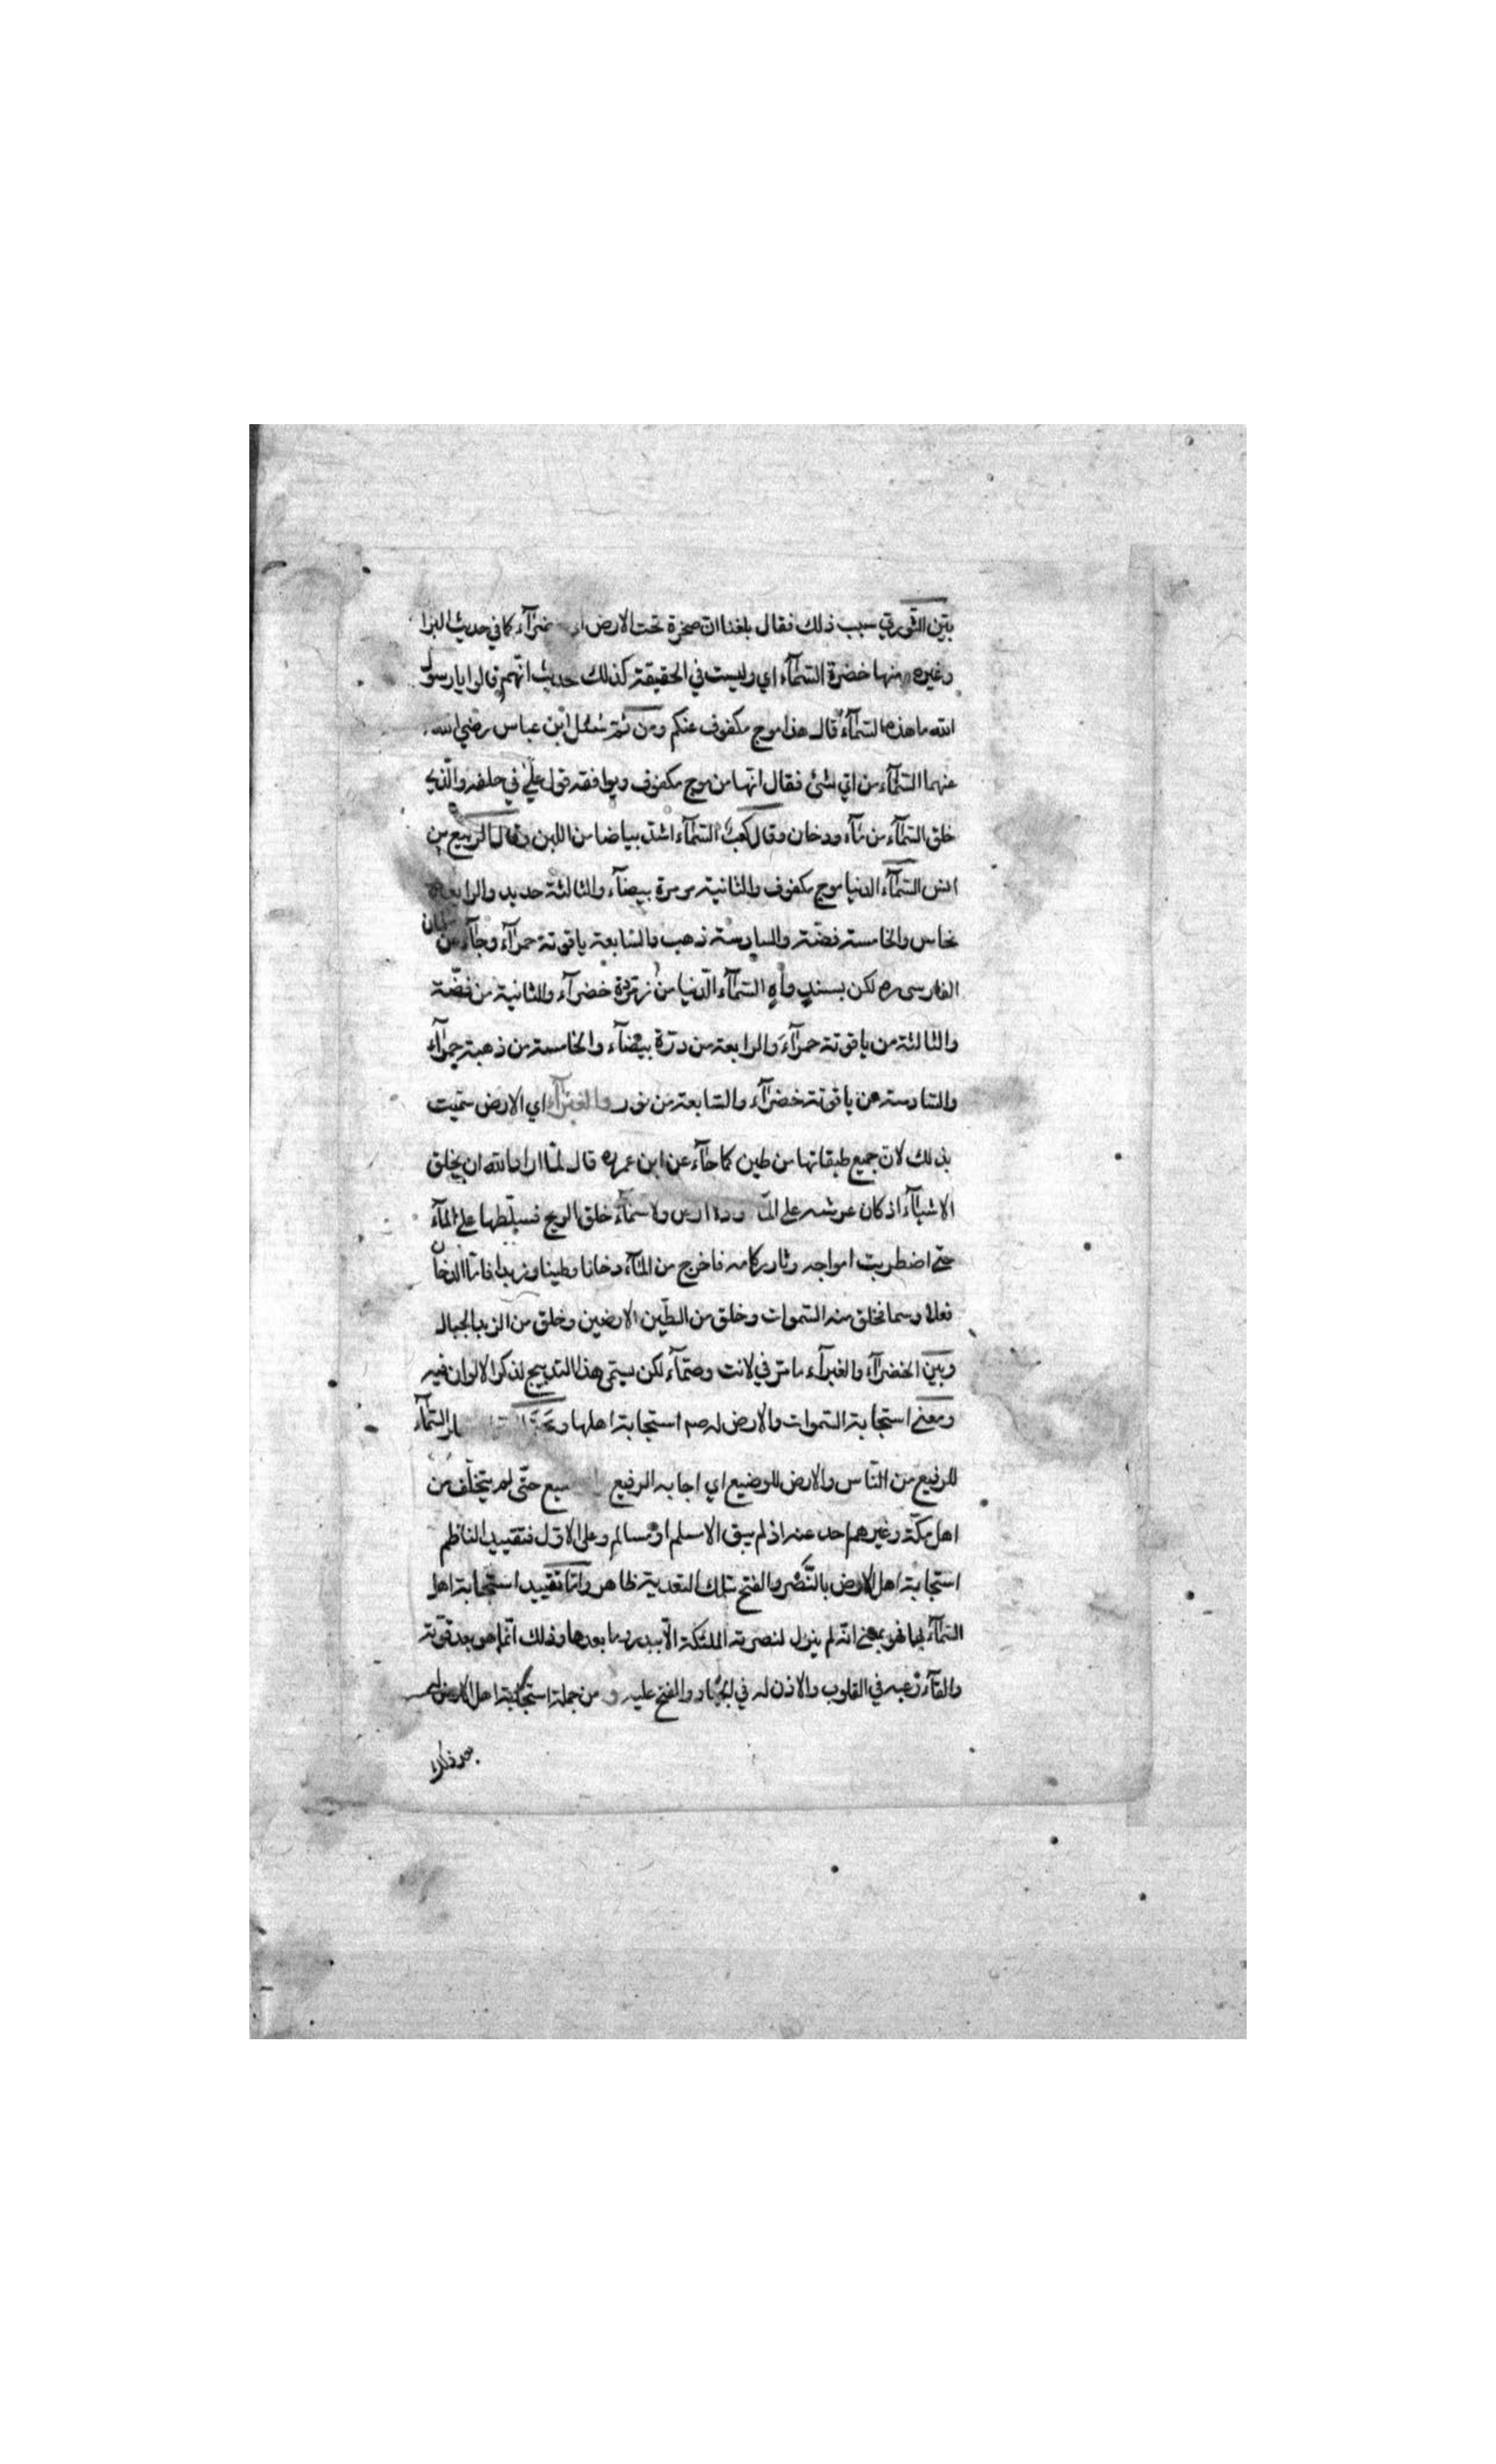 بيّن الثّوري سبب ذلك فقال بلغنا انّ صخرة تحت الارض كما في حديث البزا
وغيره منها خضرة السّمآء اي وليست في الحقيقة كذلك حديث انّهم قالوا يا رسول
الله ما هذه السّمآء قال هذا موج مكفوف عنكم ومن ثمّ سئل ابن عباس رضي الله
عنهما السّمآء من ايّ شئ فقال انّها من موج مكفوف ويوافقه قول عليّ في حلفه والّذي
خلق السّمآء من مآء ودخان وقال كعب السّمآء اشدّ بياضا من اللبن وقال الربيع بن
انس السّمآء الدنيا موج مكفوف والثانية مرمرة بيضآء والثالثة حديد والرابعة
نحاس والخامسة فضّة والسادسة ذهب والسّابعة ياقوتة حمرآء وجآء عن سلمان
الفارسى ره لكن بسند واه السّمآء الدّنيا من زمرّدة خضرآء والثانية من فضّة
والثالثة من ياقوتة حمرآء والرابعة من درّة بيضآء والخامسة من ذهبة حمرآء
والسّادسة من ياقوتة خضرآء والسّابعة من نور والغبرآء اي الارض سمّيت
بذلك لانّ جميع طبقاتها من طين كما جآء عن ابن عمر ره قال لمّا اراد الله ان يخلق
الاشيآء اذ كان عرشه على ولا سمآء خلق الريح فسلّطها على المآء
حتّى اضطربت امواجه وثار ركامه فاخرج من المآء دخانا وطينا وزبدا فامّا الدخان
فعلا وسما فخلق منه السّموات وخلق من الطّين الارضين وخلق من الزبد الجبال
وبين الخضرآء والغبرآء ما مرّ في لانت وصمّآء لكن يسمّى هذا التدبيج لذكر الالوان فيه
ومعنى استجابة السّموات والارض له صم استجابة اهلها السّمآء
للرفيع من النّاس والارض للوضيع اي اجابه الرفيع حتّى لم يتخلّف من
اهل مكّة وغيرهم احد عنه اذ لم يبق الا مسلم او مسالم وعلى الاوّل فتقييد الناظم
استجابة اهل الارض بالنّصر والفتح بتلك التعدية ظاهر وامّا تقييد استجابة اهل
السّمآء بها فهو بمعنى انّه لم ينزل لنصرته الملئكة الّا ببدر وما بعدها وذلك انّما هو بعد قوّته
والقآء رعبه في القلوب والاذن له في الجهاد والفتح عليه ومن جملة استجابة اهل الارض
بعد ذلك